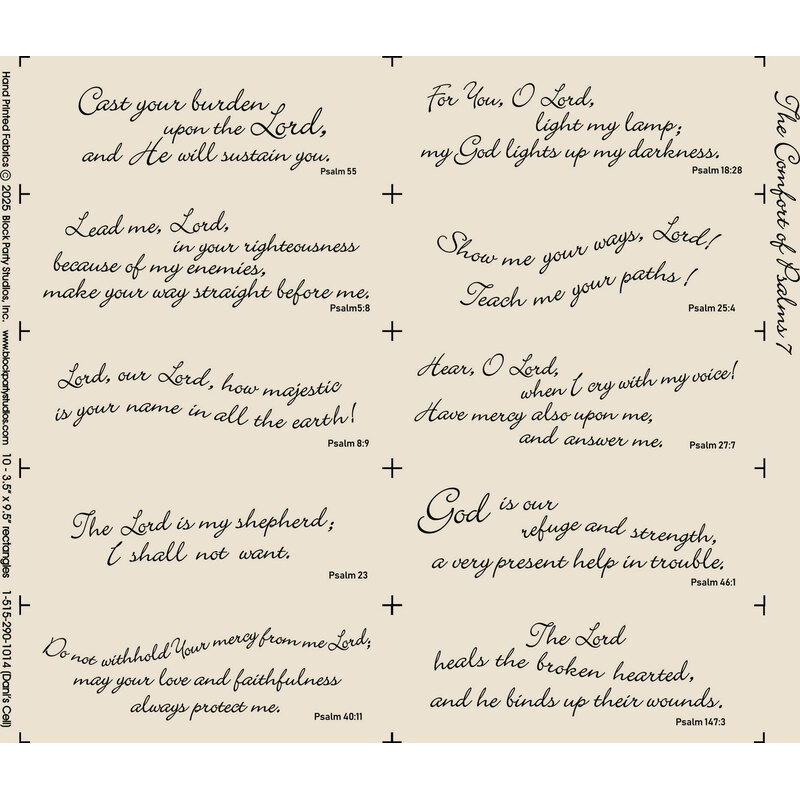 Cast your burden
upon the Lord,
and He will sustain you.
Psalm 55
For You, O Lord,
light my lamp;
my God lights up my darkness.
Psalm 18:28
Lead me, Lord,
in your righteousness
because of my enemies,
make your way straight before me.
Psalm5:8
Show me your ways, Lord!
Teach me your paths!
Psalm 25:4
Lord, our Lord, how majestic
is your name in all the earth!
Psalm 8:9
Hear, O Lord,
when I cry with my voice!
Have mercy also upon me,
and answer me.
Psalm 27:7
The Lord is my shepherd;
I shall not want.
Psalm 23
God is our
refuge and strength,
a very present help in trouble.
Psalm 46:1
Do not withhold Your mercy from me Lord;
may your love and faithfulness
always protect me.
Psalm 40:11
The Lord
heals the broken hearted,
and he binds up their wounds.
Psalm 147:3
The Comfort of Psalms 7
Hand Printed Fabrics © 2025 Block Party Studios, Inc. www.blockpartystudios.com 10 - 3.5" x 9.5" rectangles 1-515-290-1014 (Dani's Cell)